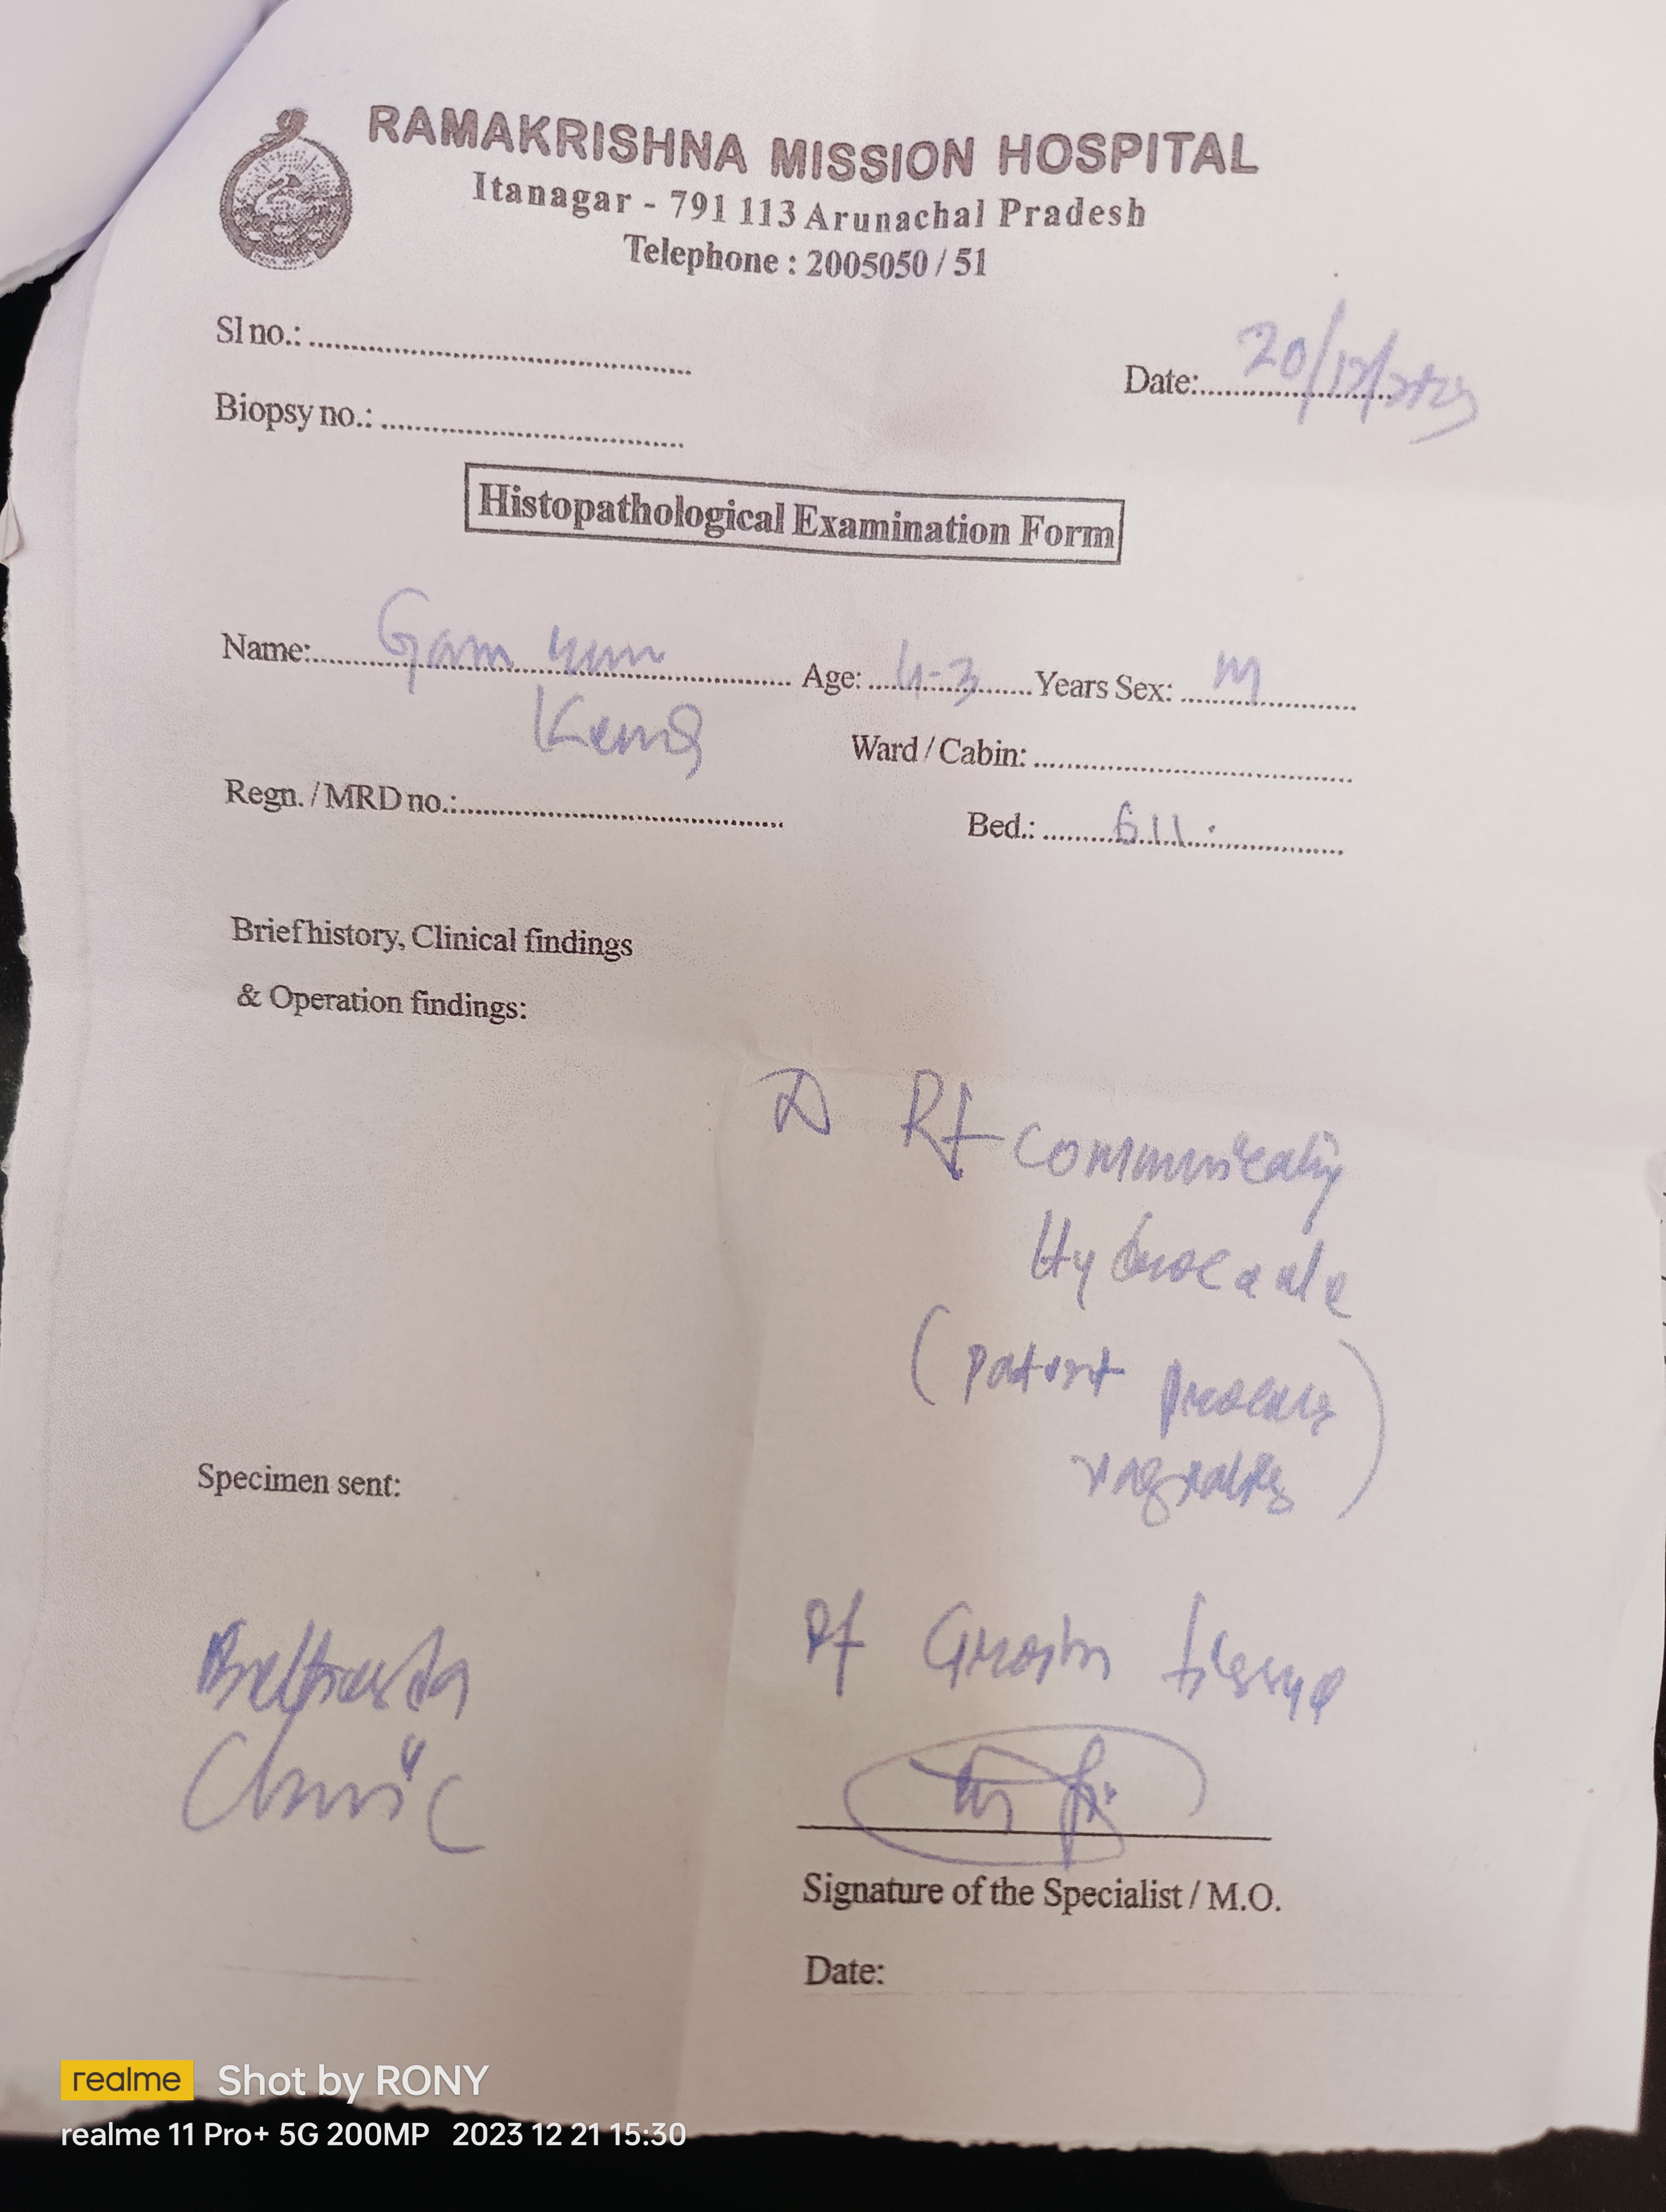 RAMAKRISHNA MISSION HOSPITAL
Itanagar - 791 113 Arunachal Pradesh
Telephone : 2005050 / 51
Sl no.:
Date: 20/12/2023
Biopsy no.:
Histopathological Examination Form
Name: Gam Age: 43 Years Sex: M
Ward / Cabin:
Regn. / MRD no.:
Bed.: 611
Brief history, Clinical findings
& Operation findings:
Rt Communicating
Hydrocele
(patent processus
vaginalis)
Specimen sent:
Rt Groin tissue
Clinic
Signature of the Specialist / M.O.
Date:
realme Shot by RONY
realme 11 Pro+ 5G 200MP 2023 12 21 15:30